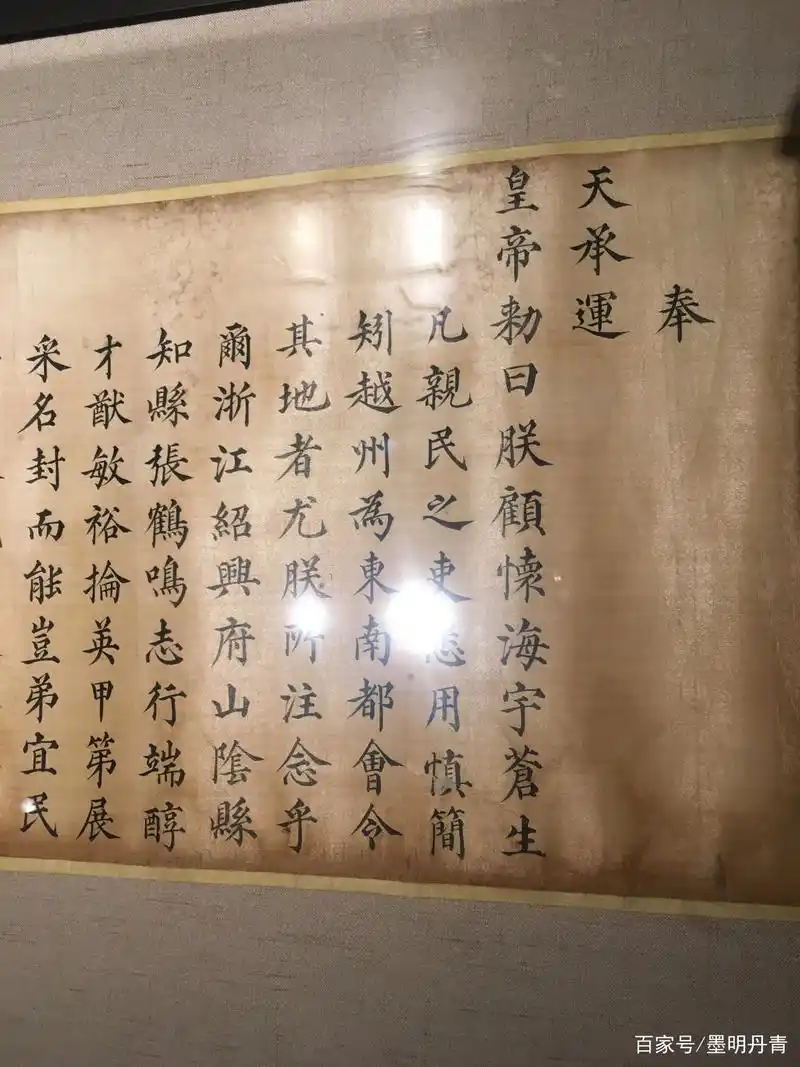 奉
天承運
皇帝勅曰朕顧懷海宇蒼生
凡親民之吏悉用慎簡
矧越州為東南都會令
其地者尤朕所注念乎
爾浙江紹興府山陰縣
知縣張鶴鳴志行端醇
才猷敏裕掄英甲第展
采名封而能豈弟宜民
百家号/墨明丹青